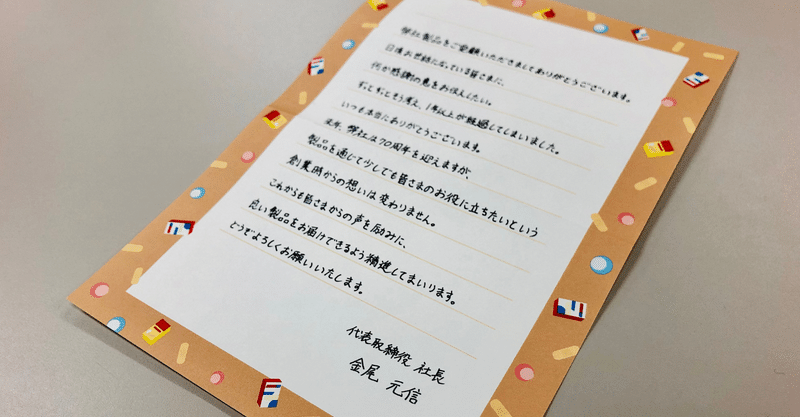 弊社製品をご愛顧いただきましてありがとうございます。
日頃お世話になっている皆さまに、
何か感謝の意をお伝えしたい。
ずっとずっとそう考え、1年以上が経過してしまいました。
いつも本当にありがとうございます。
来年、弊社は70周年を迎えますが、
製品を通じて少しでも皆さまのお役に立ちたいという
創業時からの想いは変わりません。
これからも皆さまからの声を励みに、
良い製品をお届けできるよう精進してまいります。
どうぞよろしくお願いいたします。
代表取締役 社長
金尾 元信